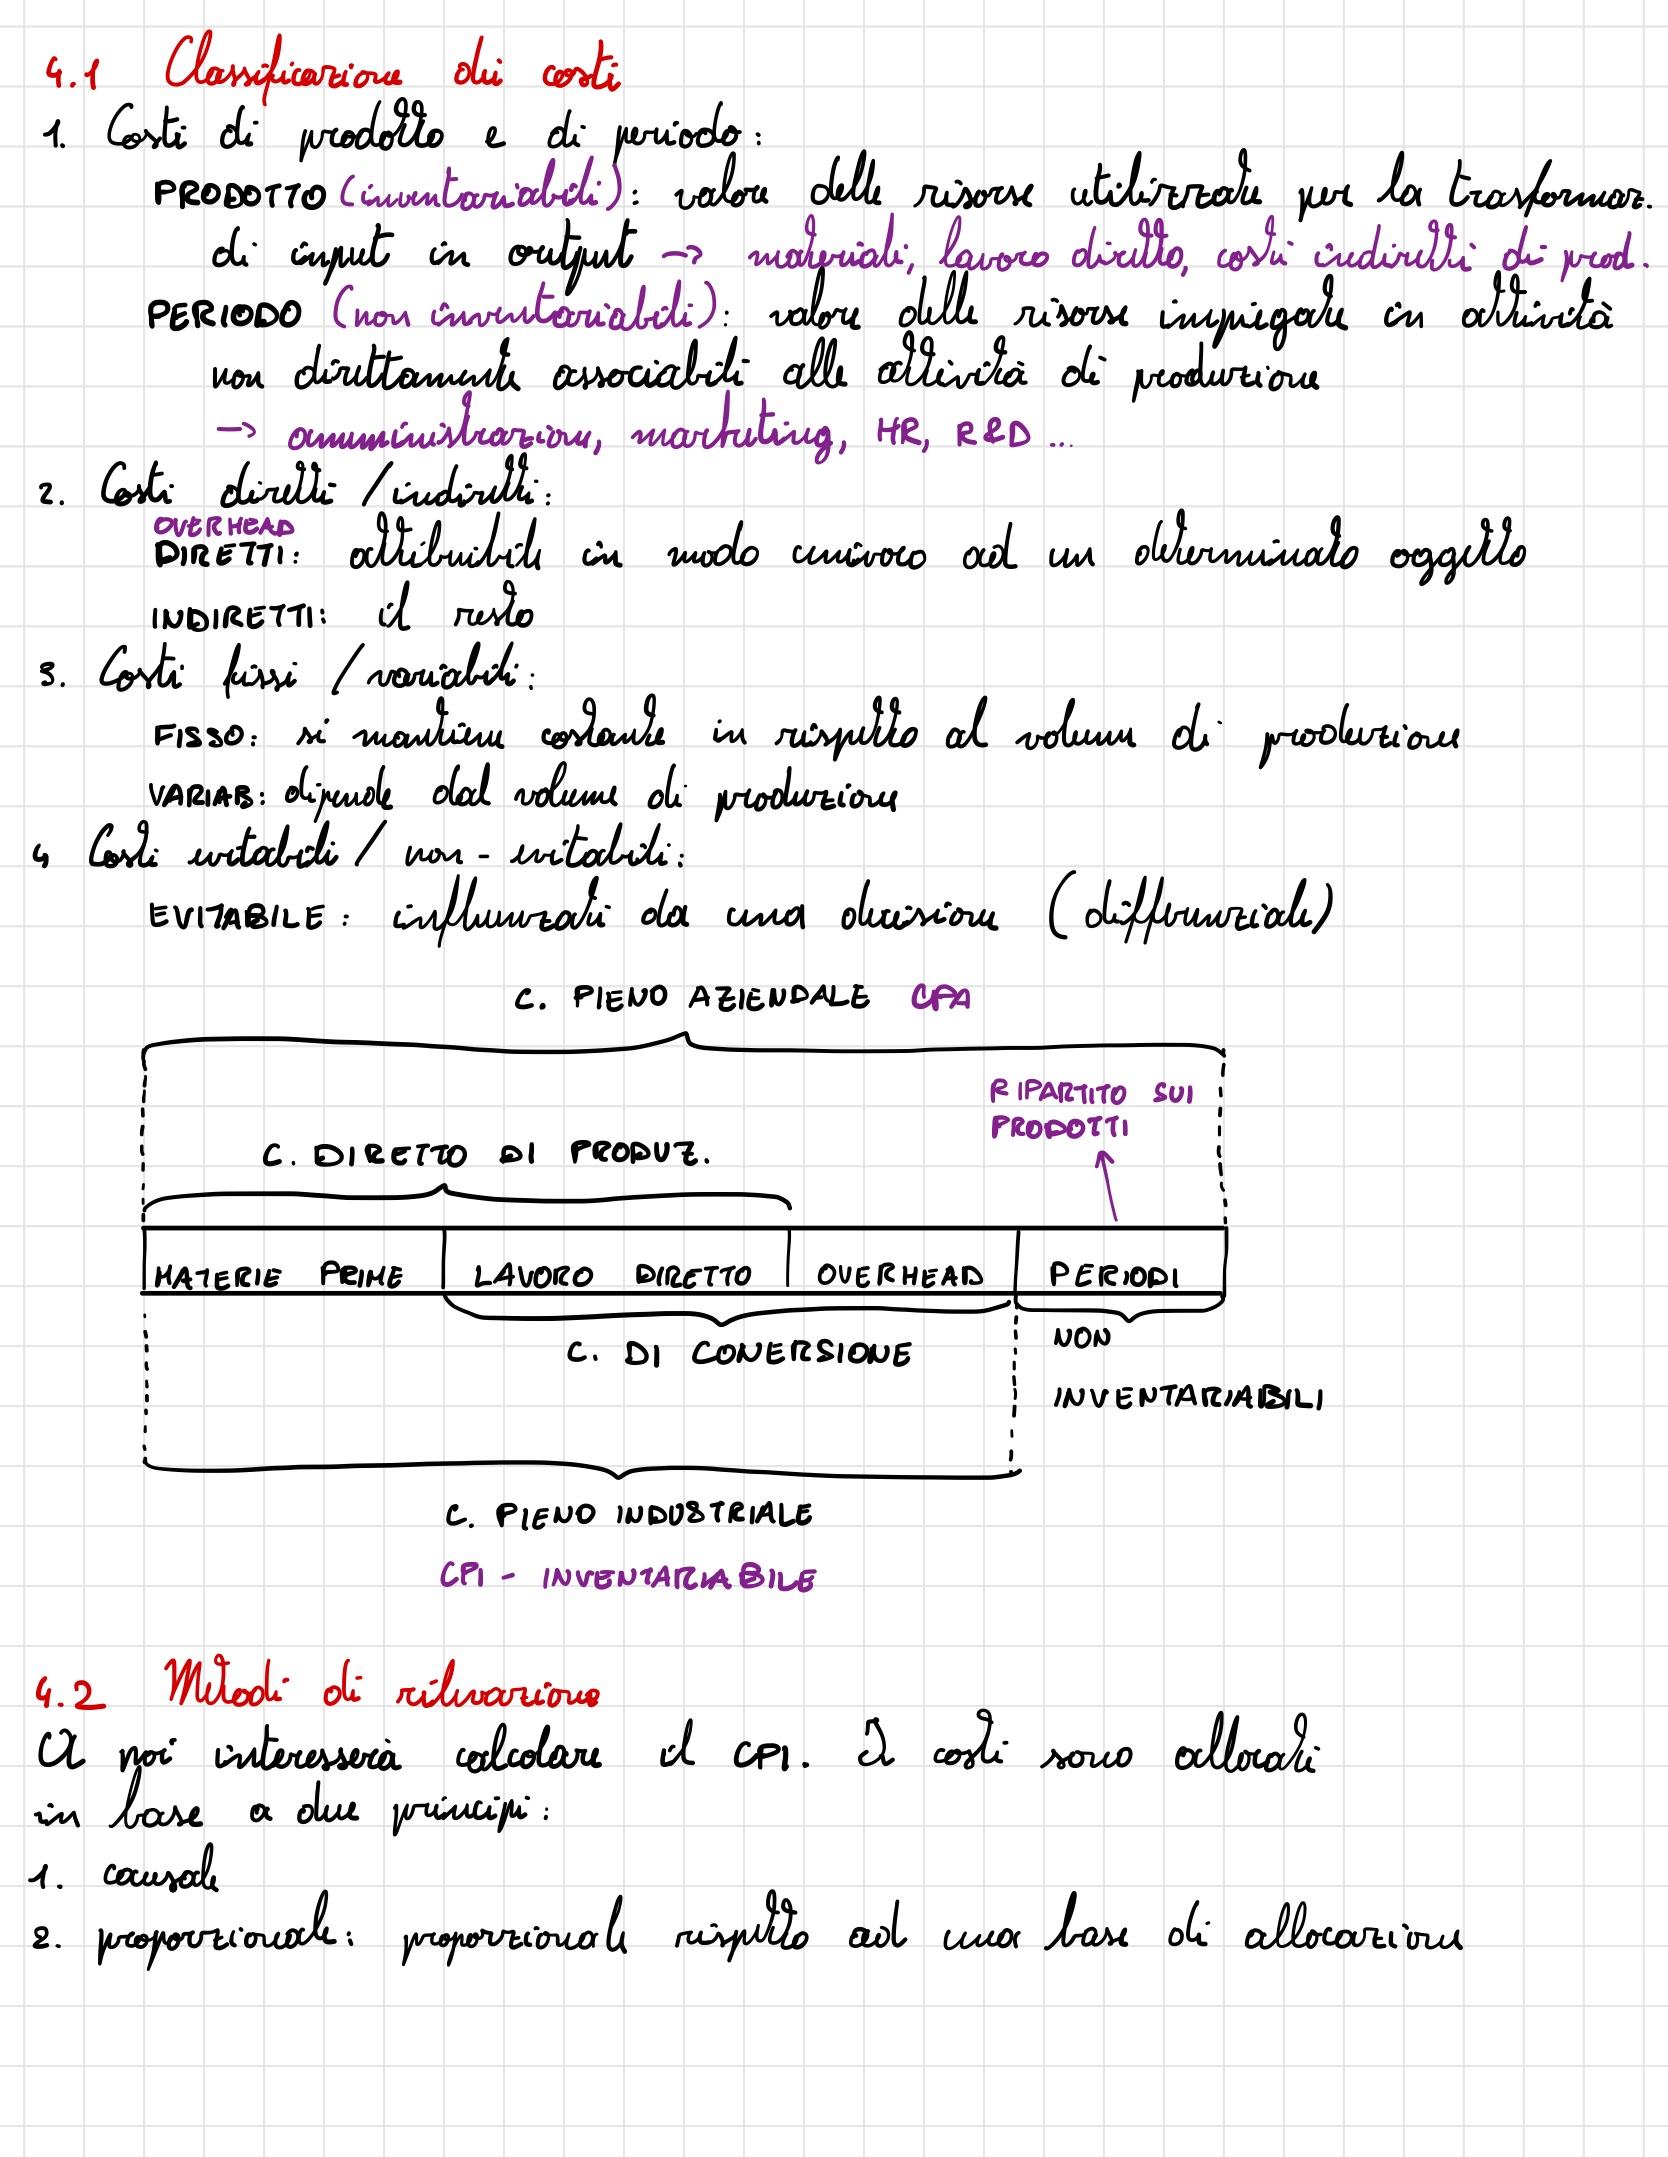 4.1 Classificazione dei costi
1. Costi di prodotto e di periodo:
PRODOTTO (inventariabili): valore delle risorse utilizzate per la trasformaz.
di input in output -> materiali, lavoro diretto, costi indiretti di prod.
PERIODO (non inventariabili): valore delle risorse impiegate in attività
non direttamente associabili alle attività di produzione
-> amministrazione, marketing, HR, R&D ...
2. Costi diretti / indiretti:
OVERHEAD
DIRETTI: attribuibile in modo univoco ad un determinato oggetto
INDIRETTI: il resto
3. Costi fissi / variabili:
FISSO: si mantiene costante in rispetto al volume di produzione
VARIAB: dipende dal volume di produzione
4 Costi evitabili / non - evitabili:
EVITABILE: influenzati da una decisione (differenziale)
C. PIENO AZIENDALE CPA
RIPARTITO SUI
PRODOTTI
C. DIRETTO DI PRODUZ.
MATERIE PRIME LAVORO DIRETTO OVERHEAD PERIODI
C. DI CONERSIONE
NON
INVENTARIABILI
C. PIENO INDUSTRIALE
CPI - INVENTARIABILE
4.2 Metodi di rilevazione
A noi interesserà calcolare il CPI. I costi sono allocati
in base a due principi:
1. causale
2. proporzionale: proporzionale rispetto ad una base di allocazione